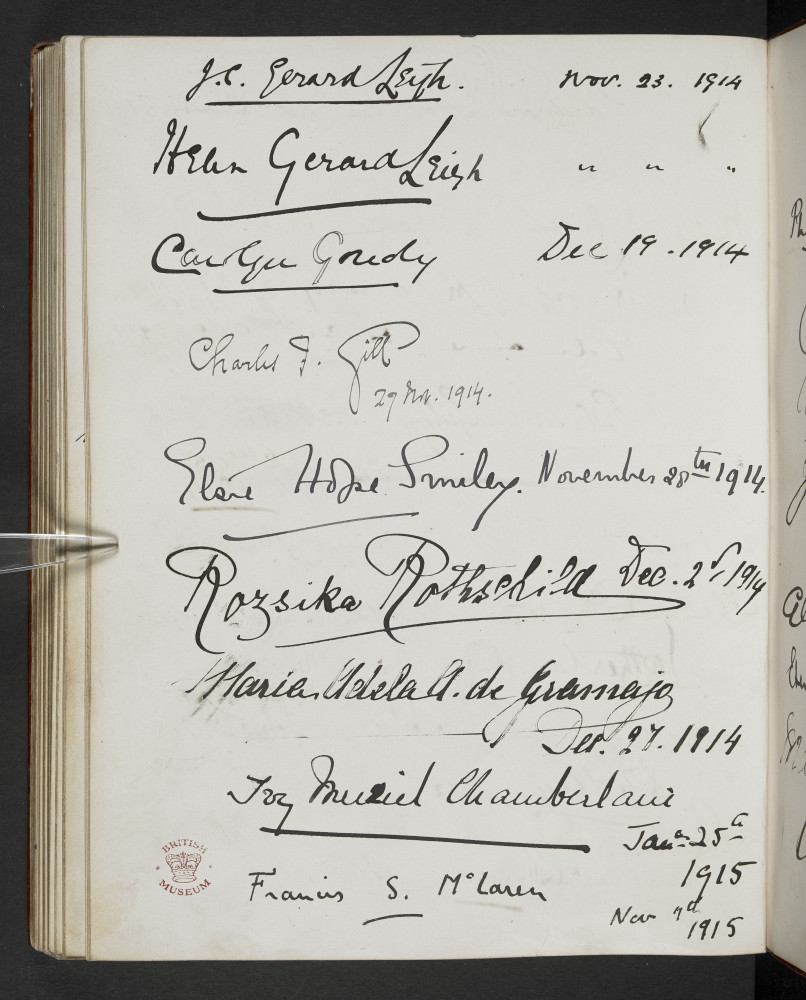 J.C. Gerard Leigh. Nov. 23. 1914
Helen Gerard Leigh " " "
Carolyn Gouedy Dec 19 - 1914
Charles F. Gill
29 Nov. 1914.
Elsie Hope Smiley. November 28th 1914.
Rozsika Rothschild Dec. 2d, 1914
Maria Adela A. de Gramajo
Dec. 27. 1914
Ivy Muriel Chamberlain
Jany 25th
1915
Francis S. McLaren
Nov 7th
1915
BRITISH
MUSEUM